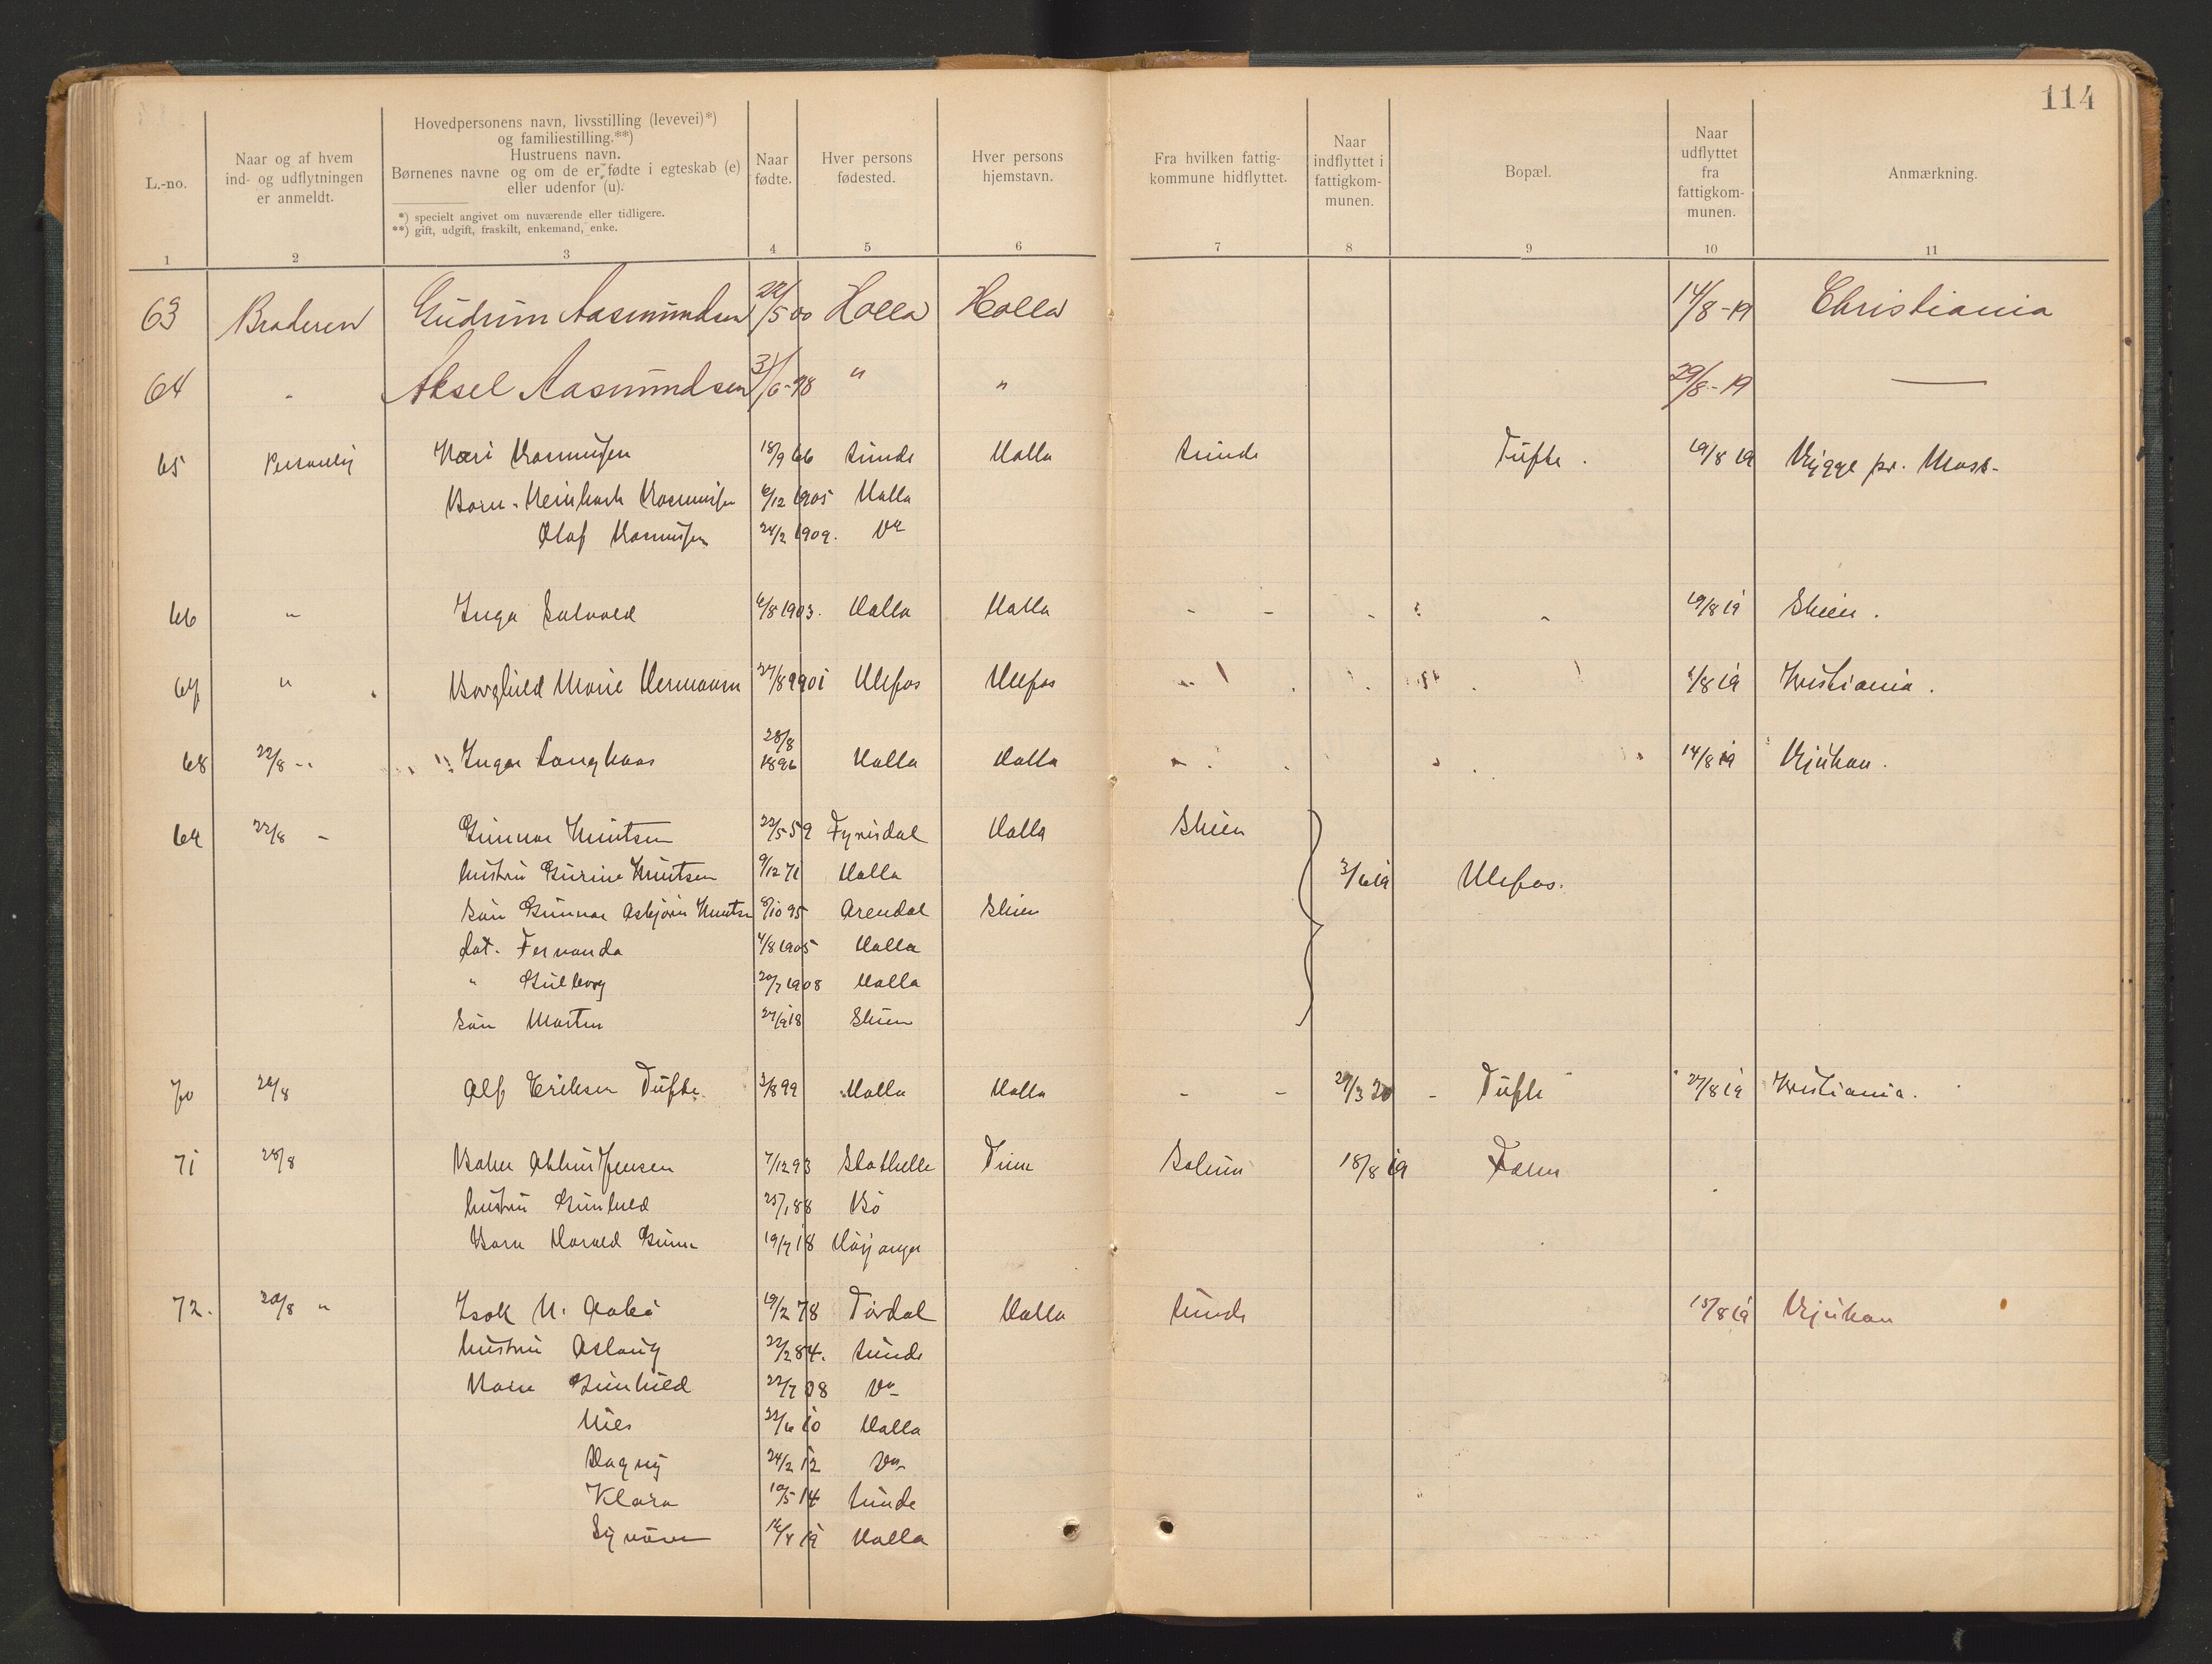 114
L.-no.
Naar og af hvem
ind- og udflytningen
er anmeldt.
Hovedpersonens navn, livsstilling (levevei)*)
og familiestilling.**)
Hustruens navn.
Børnenes navne og om de er fødte i egteskab (e)
eller udenfor (u).
*) specielt angivet om nuværende eller tidligere.
**) gift, udgift, fraskilt, enkemand, enke.
Naar
fødte.
Hver persons
fødested.
Hver persons
hjemstavn.
Fra hvilken fattig-
kommune hidflyttet.
Naar
indflyttet i
fattigkom-
munen.
Bopæl.
Naar
udflyttet
fra
fattigkom-
munen.
Anmærkning.
1 2 3 4 5 6 7 8 9 10 11
63 Broderen Gudrun Aasmundsen /5 00 Holla Holla 14/8-19 Christiania
64 " Aksel Aasmundsen 3/6-98 " " 29/8-19 —
65 Personlig Rasmussen 18/9 66 Lunde Holla Lunde Tufte. 19/8 19 Rygge pr. Moss.
Barn. Reinhart Rasmussen 6/12 1905 Holla
Olaf Rasmussen 24/2 1909. Do
66 " Inga Solvold 6/8 1903. Holla Holla 19/8 19 Skien.
67 " Borghild Marie Hermansen 27/8 1901 Ulefos Ulefos 1/8 19 Kristiania.
68 22/8 -" Inga Langkaas 28/8 1896 Holla Holla 14/8 19 Rjukan.
69 22/8 - Gunnar Knutsen 22/5 59 Fyresdal Holla Skien
hustru Gurine Knutsen 9/12 71 Holla 3/6 19 Ulefos.
Søn Gunnar Asbjørn Knutsen 8/10 95 Arendal Skien
dat. Fernanda 4/8 1905 Holla
" Gulborg 20/7 1908 Holla
Søn Morten 27/9 18 Skien
70 26/8 Alf Eriksen Tufte. 3/8 99 Holla Holla - - 29/3 20 - Tufte 27/8 19 Kristiania.
71 28/8 Jensen 7/12 93 Stathelle Solum 18/8 19 Faen
hustru Gunhild 25/1 88 Bø
Barn Harald 19/7 18 Høyanger
72. 28/8 " Isak N. 19/2 78 Tørdal Holla Lunde 15/8 19 Rjukan
hustru Aslaug 22/2 84. Lunde
Barn Gunhild 22/7 08 Do
Nils 22/6 10 Holla
Dagny 24/2 12 Do
Klara 10/5 14 Lunde
Synøve 16/4 19 Holla